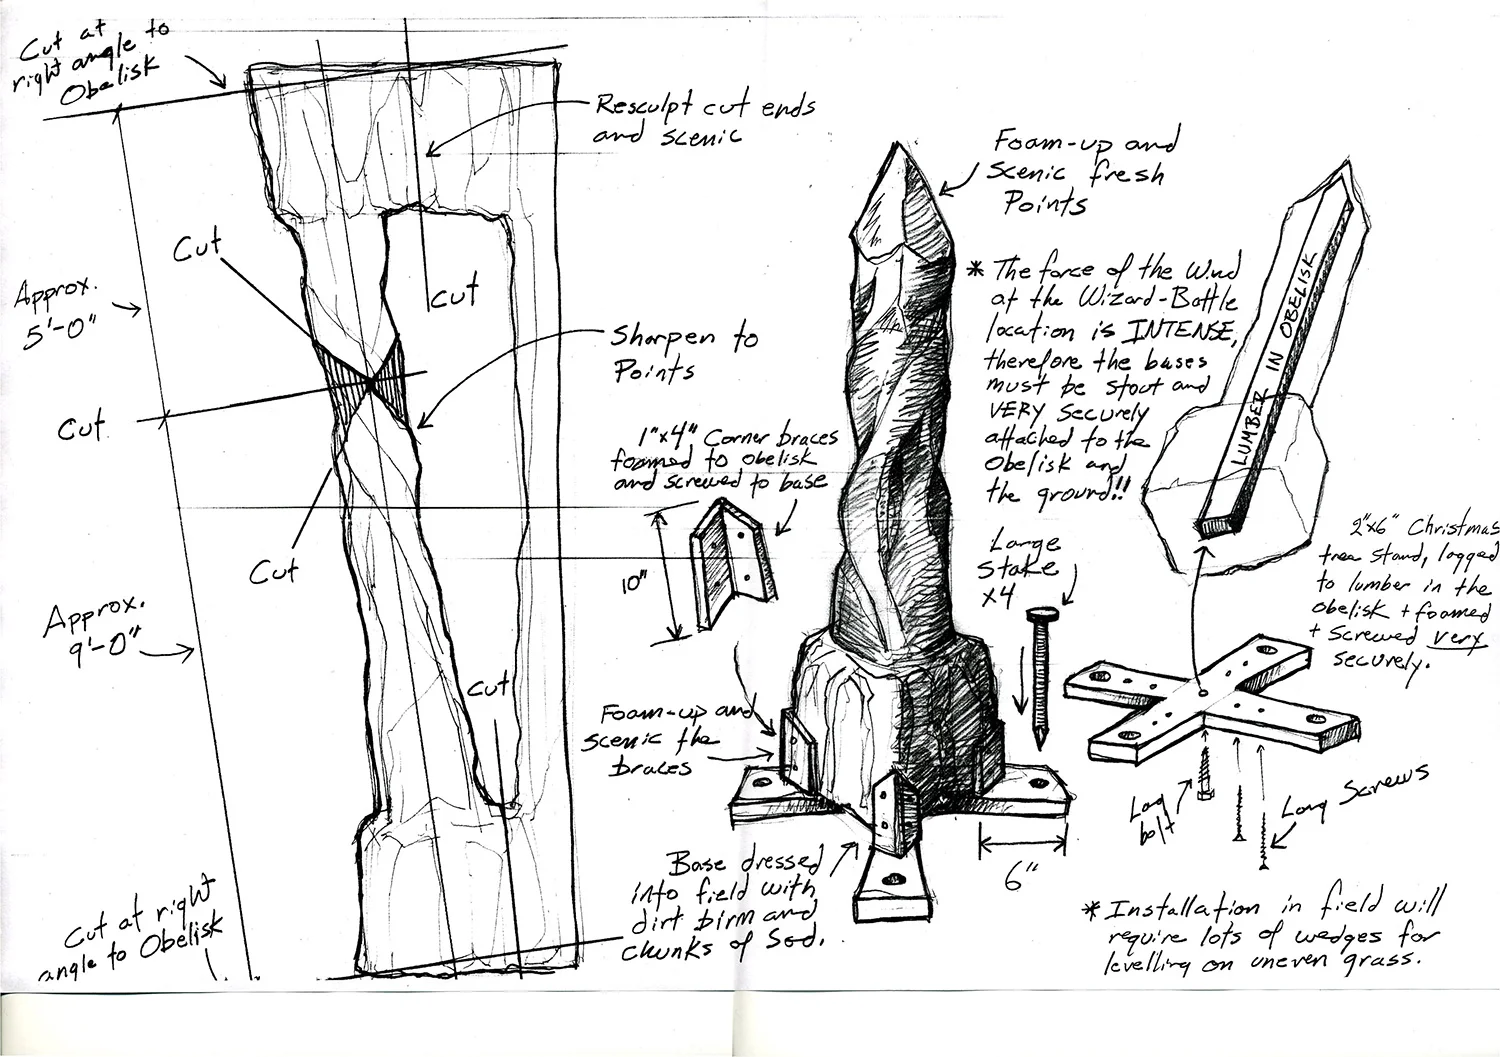 Cut at
right angle to
Obelisk
Resculpt cut ends
and scenic
Cut
Cut
Approx.
5'-0"
Sharpen to
Points
Cut
Cut
Approx.
9'-0"
Cut
Cut at right
angle to Obelisk
1"x4" Corner braces
foamed to obelisk
and screwed to base
10"
Foam-up and
scenic the
braces
Base dressed
into field with
dirt birm and
chunks of Sod.
6"
Foam-up and
Scenic fresh
Points
* The force of the Wind
at the Wizard-Battle
location is INTENSE,
therefore the bases
must be stout and
VERY securely
attached to the
Obelisk and
the ground!!
Large
Stake
x4
LUMBER IN OBELISK
2"x6" Christmas
tree stand, lagged
to lumber in the
obelisk + foamed
+ screwed very
securely.
Lag
bolt
Long Screws
* Installation in field will
require lots of wedges for
levelling on uneven grass.